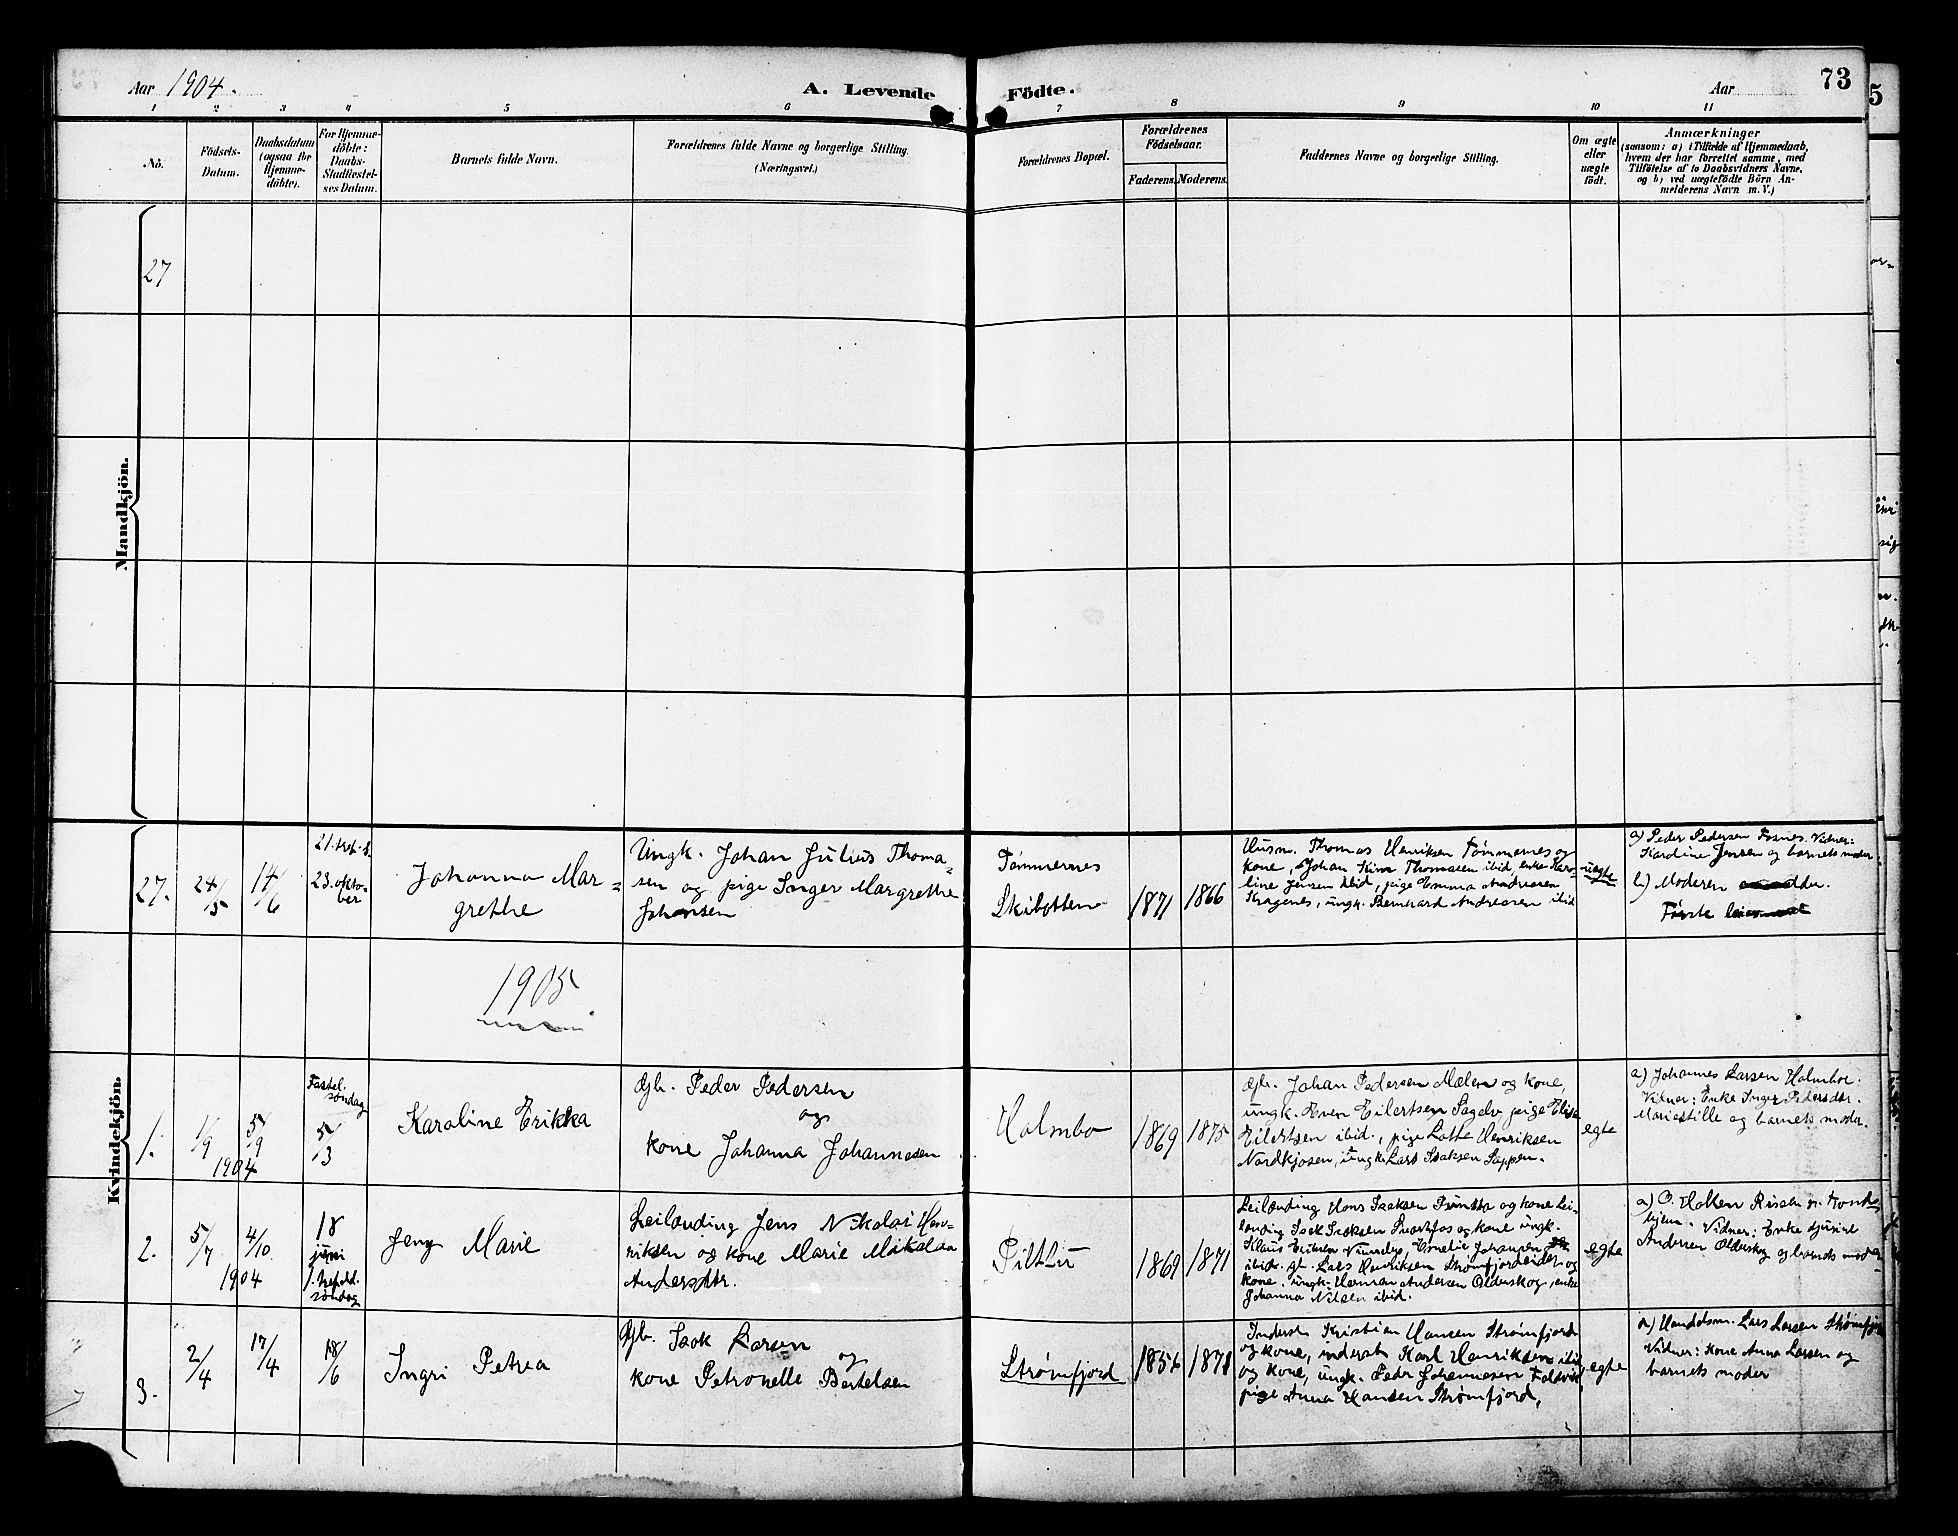 Aar 1904.
A. Levende
Födte.
Aar
73
1 2 3 4 5 6 7 8 9 10 11
No.
Födsels-
Datum.
Daabsdatum
(ogsaa for
Hjemme-
döbte).
For Hjemme-
döbte:
Daabs-
Stadfæstel-
ses Datum.
Barnets fulde Navn.
Forældrenes fulde Navne og borgerlige Stilling.
(Næringsvei.)
Forældrenes Bopæl.
Forældrenes
Födselsaar.
Faderens. Moderens.
Faddernes Navne og borgerlige Stilling.
Om ægte
eller
uægte
födt.
Anmærkninger
(saasom: a) i Tilfælde af Hjemmedaab,
hvem der har forrettet samme, med
Tilföielse af to Daabsvidners Navne,
og b) ved uægtefödte Börn An-
melderens Navn m. V.)
Mandkjön.
27
Kvindekjön.
27.
24/5
14/6
23. okto-
ber
Johanna Mar-
grethe
Ungk. Johan Julius Thoma-
sen og pige Inger Margrethe
Johansen
Tømmernes
Skibotten
1871
1866
Husm. Thomas Henriksen Tømmernes og
kone, Johan Thomasen ibid, enke Karo-
line Jensen ibid, pige Emma Andreasen
ungk. Bernhard Andreasen ibid
uegte
a) Peder Pedersen Vidner:
Karoline Jensen og barnets moder
b) Moderen
Første
1905
1.
1/9
5/9
1904
Fastel.
søndag
5/3
Karoline Erikka
Gbr. Peder Pedersen
og
kone Johanna Johannesen
Holmbo
1869
1875
Gbr. Johan Pedersen Mælen og kone,
ungk. Even Eilertsen Sagelv, pige Elise
Eilertsen ibid., pige Lotte Henriksen
Nordkjosen, ungk. Lars Isaksen
egte
a) Johannes Larsen Holmboe.
Vidner: Enke Inger Pedersdtr.
og barnets moder.
2.
5/7
4/10
1904
18
juni
søndag
Jeny Marie
Leilænding Jens Nikolai Hen-
riksen og kone Marie Nikolaa
Andersdtr.
1869
1871
Leilænding Hans Isaksen og kone Lei-
lænding Isak Isaksen og kone ungk.
Klaus Eriksen Emelie Johansen
ibid. Lars Henriksen Strømfjordeidet og
kone, ungk. Herman Andersen Olderskog, enke
Johanna Nilsen ibid.
egte
a) O. Holten
hjem. Vidner: Enke
Andersen Olderskog og barnets moder
3.
2/4
17/4
18/6
Ingri Petrea
Gbr. Isak Larsen
og
kone Petronelle Bertelsen
Strømfjord
1878
Inderst Kristian Hansen Strømfjord
og kone, inderst Karl Henriksen ibid
og kone, ungk. Peder Johannesen
pige Anna Hansen Strømfjord,
egte
a) Handelsm. Lars Larsen
Vidner: kone Anna Larsen og
barnets moder